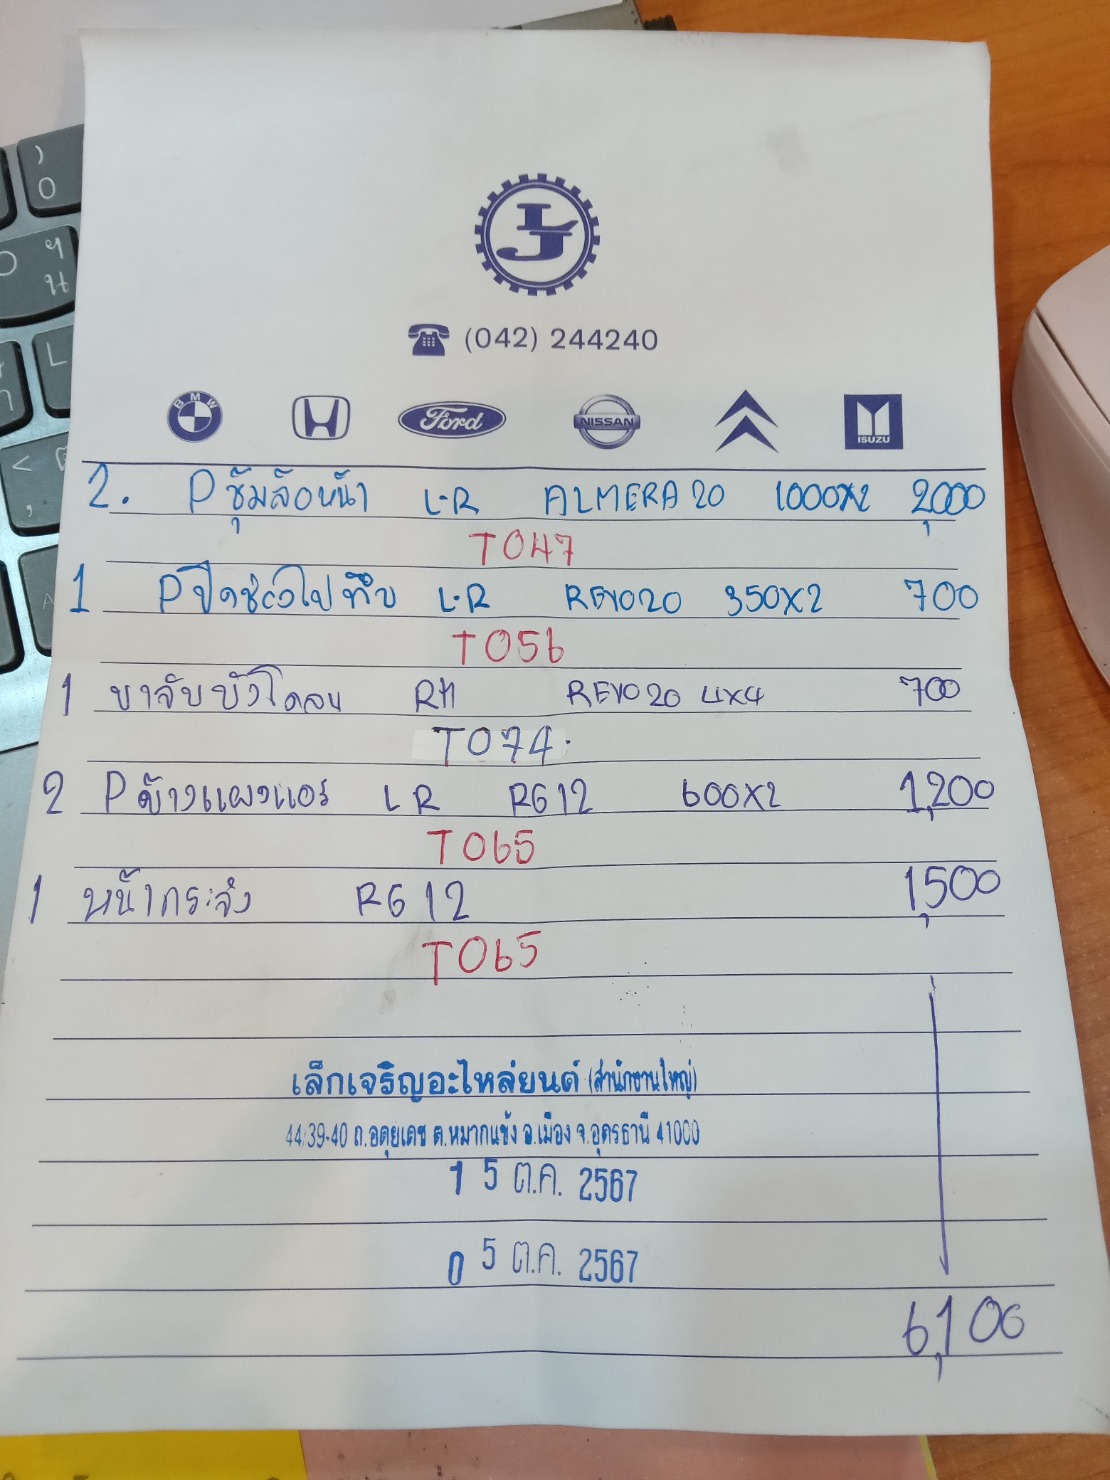 LJ
(042) 244240
BMW Ford NISSAN ISUZU
2. Pซุ้มล้อหน้า L-R ALMERA 20 1000x2 2,000
T047
1 Pปิดช่องไปทึบ L-R REVO20 350x2 700
T056
1 ขาจับบังโคลน RH REVO20 4x4 700
T074.
2 Pข้างแผงแอร์ LR RG12 600x2 1,200
T065
1 หน้ากระจัง RG12 1,500
T065
เล็กเจริญอะไหล่ยนต์ (สำนักงานใหญ่)
44/39-40 ถ.อดุยเดช ต.หมากแข้ง อ.เมือง จ.อุดรธานี 41000
15 ต.ค. 2567
05 ต.ค. 2567
6,100